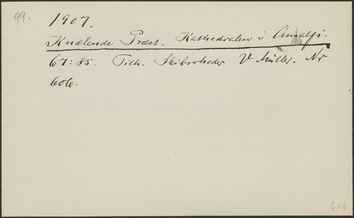 99.
1907.
Knælende Præst. Kathedralen i Amalfi.
67:85. Tilh. Skibsreder V. Müller. Nr
606.
606